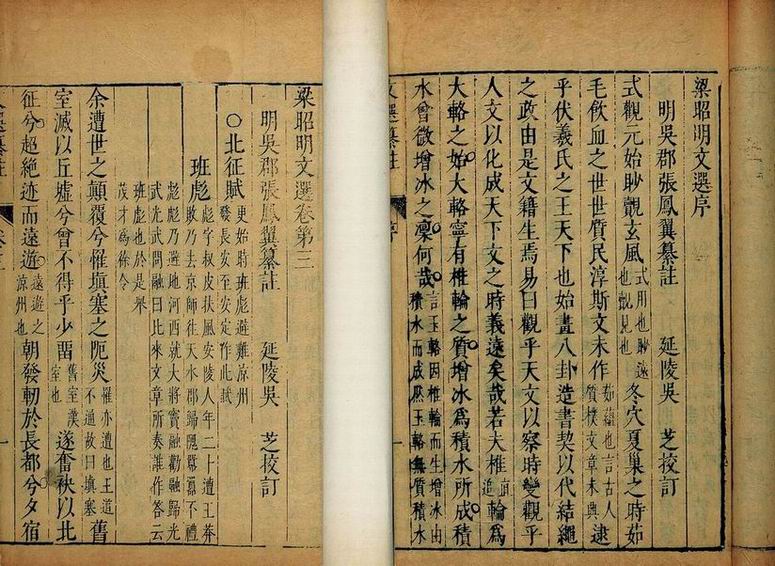 梁昭明文選序
明吳郡張鳳翼纂註 延陵吳 芝校訂
式觀元始眇覿玄風式用也眇遠也覿見也冬穴夏巢之時茹
毛飲血之世世質民淳斯文未作茹蘊也言古人質樸文章未興逮
乎伏羲氏之王天下也始畫八卦造書契以代結繩
之政由是文籍生焉易曰觀乎天文以察時變觀乎
人文以化成天下文之時義遠矣哉若夫椎追直輪為
大輅之始大輅寧有椎輪之質增冰為積水所成積
水曾微增冰之凜何哉言玉輅因椎輪而生增冰由積水而成然玉輅無質積水
文選纂註 序
梁昭明文選卷第三
明吳郡張鳳翼纂註 延陵吳 芝校訂
○北征賦更始時班彪避難涼州發長安至安定作此賦
班彪彪字叔皮扶風安陵人年二十遭王莽敗乃去京師往天水郡歸隗囂囂不禮
彪彪乃避地河西就大將竇融勸融歸光
武光武問融曰比來文章所奏誰作答云
班彪也於是舉
茂才為徐令
余遭世之顛覆兮罹填塞之阨災罹亦遭也王道不通故曰填塞舊
室滅以丘墟兮曾不得乎少留舊室漢室也遂奮袂以北
征兮超絕迹而遠遊遠遊之涼州也朝發軔於長都兮夕宿
文選纂註